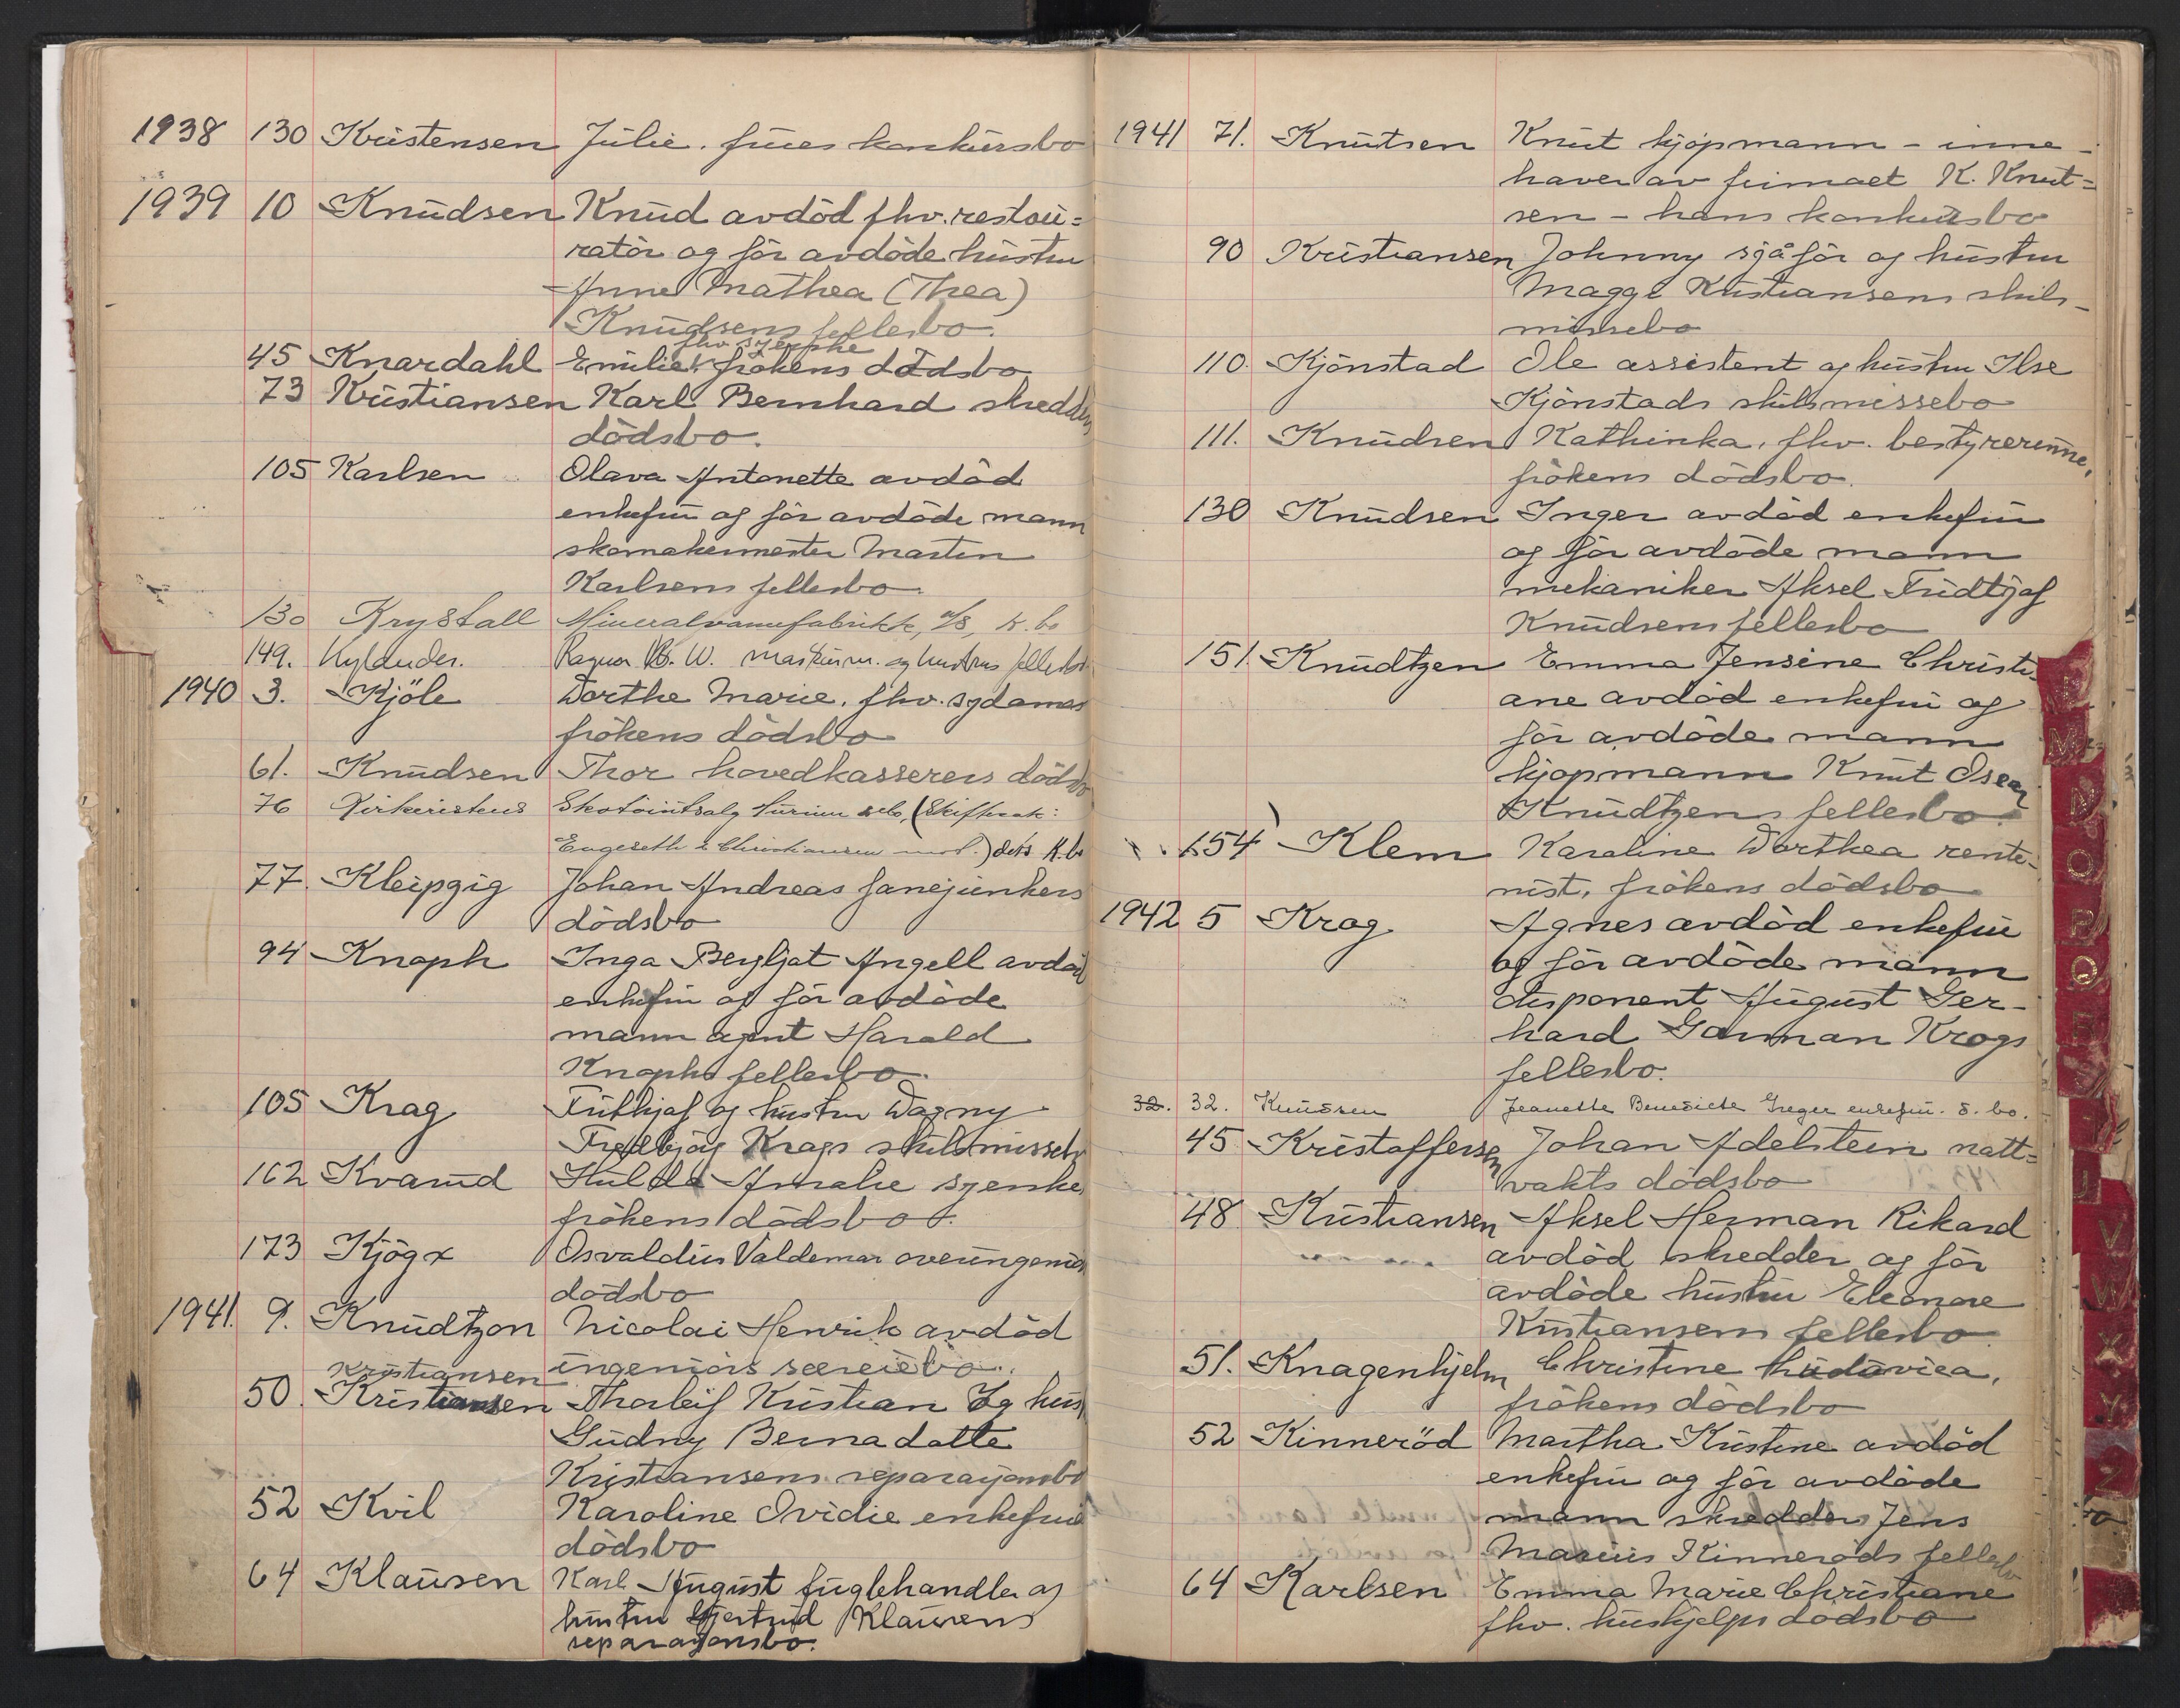 1938 130 Kristensen Julie. frues konkursbo
1939 10 Knudsen Knud avdöd fhv. restau=
ratör og för avdöde hustru
Anne Mathea (Thea)
Knudsens fellesbo.
fhv. syerske
45 Knardahl Emilie frökens dödsbo
73 Kristiansen Karl Bernhard skredders
dödsbo.
105 Karlsen Olava Antonette avdöd
enkefru og för avdöde mann
skomakermester Martin
Karlsens fellesbo
130 Krystall Mineralvannfabrikk, A/S, k. bo
149. Kylander. Ragnar B. W. maskinm. og hustrus fellesbo
1940 3. Kjöle Dorthe Marie. fhv. sydames
frökens dödsbo
61. Knudsen Thor hovedkasserers dödsbo
76 Kirkeristens Skotöiutsalg
Engeseth & Christiansen dets k. bo
77. Kleipzig Johan Andreas fanejunkers
dödsbo
94 Knoph Inga Bergljot Angell avdöd
enkefru og för avdöde
mann agent Harald
Knophs fellesbo.
105 Krag Frithjof og hustru Dagny
Krags skilsmissebo
162 Kvarud Hulda Amalie syerske
frökens dödsbo.
173 Kjög x Osvaldus Valdemar overingeniörs
dödsbo
1941. 9. Knudtzon Nicolai Henrik avdöd
ingeniörs særeiebo.
Kristiansen
50. Kristiansen Thorleif Kristian og hus
Gudny Bernadotte
Kristiansens reparasjonsbo
52 Kvil Karoline Ovidie enkefrus
dödsbo
64 Klausen Karl August fuglehandler og
hustru Gjertrud Klausens
reparasjonsbo.
1941 71. Knutsen Knut kjöpmann - inne-
haver av firmaet K. Knut=
sen - hans konkursbo
90 Kristiansen Johnny sjåför og hustru
Maggi Kristiansens skils-
missebo
110. Kjönstad Ole assistent og hustru Ilse
Kjönstads skilsmissebo
111. Knudsen Kathinka, fhv. bestyrerinne,
frökens dödsbo.
130 Knudsen Inger avdöd enkefru
og för avdöde mann
mekaniker Aksel Fridtjof
Knudsens fellesbo
151. Knudtzen Emma Jensine Christi-
ane avdöd enkefru og
för avdöde mann
kjöpmann Knut Oscar
Knudtzens fellesbo
154 Klem Karoline Dorthea rente-
nist, frökens dödsbo
1942 5 Krag Agnes avdöd enkefru
og för avdöde mann
disponent August Ger-
hard Garman Krags
fellesbo.
32. 32. Knudsen Jeanette Benedicte Greger enkefru. d. bo.
45 Kristoffersen Johan Adelsteen natt=
vakts dödsbo
48 Kristiansen Aksel Herman Rikard
avdöd skredder og för
avdöde hustru Eleonore
Kristiansens fellesbo
51. Knagenhjelm Christine Ludovica,
frökens dödsbo
52 Kinneröd Martha Kristine avdöd
enkefru og för avdöde
mann skredder Jens
Marius Kinneröds fellesbo
64 Karlsen Emma Marie Christiane
fhv. huskjelps dödsbo
L
M
N
O
P
Q
R
S
T
U
V
W
X
Y
Z